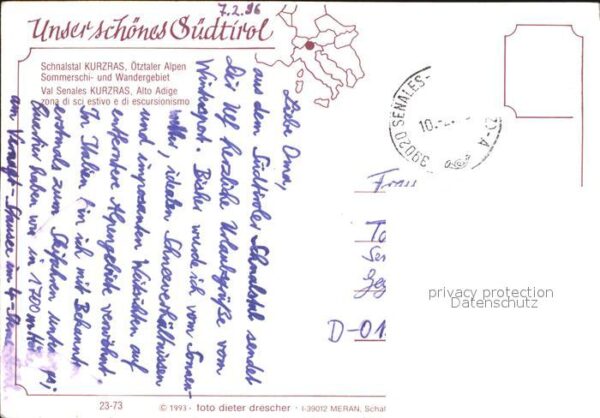 7.2.96
Unser schönes Südtirol
Schnalstal KURZRAS, Ötztaler Alpen
Sommerschi- und Wandergebiet
Val Senales KURZRAS, Alto Adige
zona di sci estivo e di escursionismo
Liebe Oma,
aus dem Südtiroler Schnalstal sendet
Dir herzliche Urlaubsgrüße vom
Wintersport. Bisher wurde ich vom Sonnen-
idealen Schneeverhältnissen
und imposanten Weitsichten auf
entferntere Alpengebiete verwöhnt.
In Italien bin ich mit Bekannt.
erstmals zum Skifahren
haben wir in 1700 m
am Vernagt-Stausee im
39020 SENALES-
10.
Frau
D-01
privacy protection
Datenschutz
23-73
© 1993 - foto dieter drescher - I-39012 MERAN, Schal